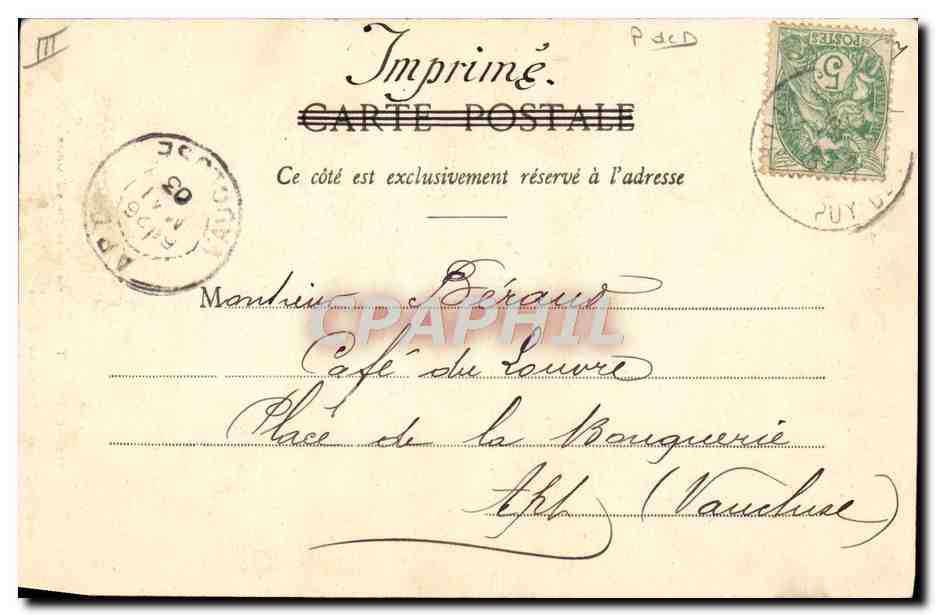 III
P de D
Imprimé.
CARTE POSTALE
POSTES
5
Ce côté est exclusivement réservé à l'adresse
APT
VAUCLUSE
26
03
PUY D
Monsieur Béraud
CPAPHIL
Café du Louvre
Place de la Bouquerie
Apt (Vaucluse)